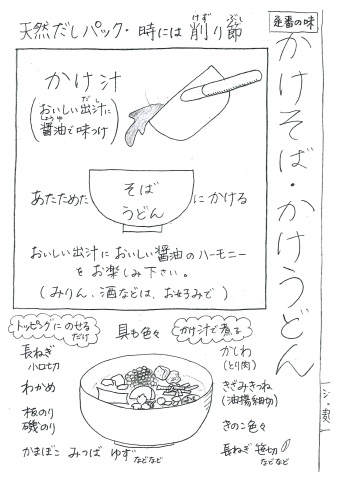 定番の味
かけそば・かけうどん
天然だしパック・時には削り節
けず
ぶし
かけ汁
(おいしい出汁に
だし
醤油で味つけ)
しょうゆ
そば
うどん
あたためた
にかける
おいしい出汁においしい醤油のハーモニー
をお楽しみ下さい。
(みりん、酒などは、お好みで)
トッピングにのせる
だけ
具も色々
かけ汁で煮る
長ねぎ
小口切
わかめ
板のり
磯のり
かまぼこ みつば ゆず などなど
かしわ
(とり肉)
きざみきつね
(油揚細切)
きのこ色々
長ねぎ 笹切
などなど